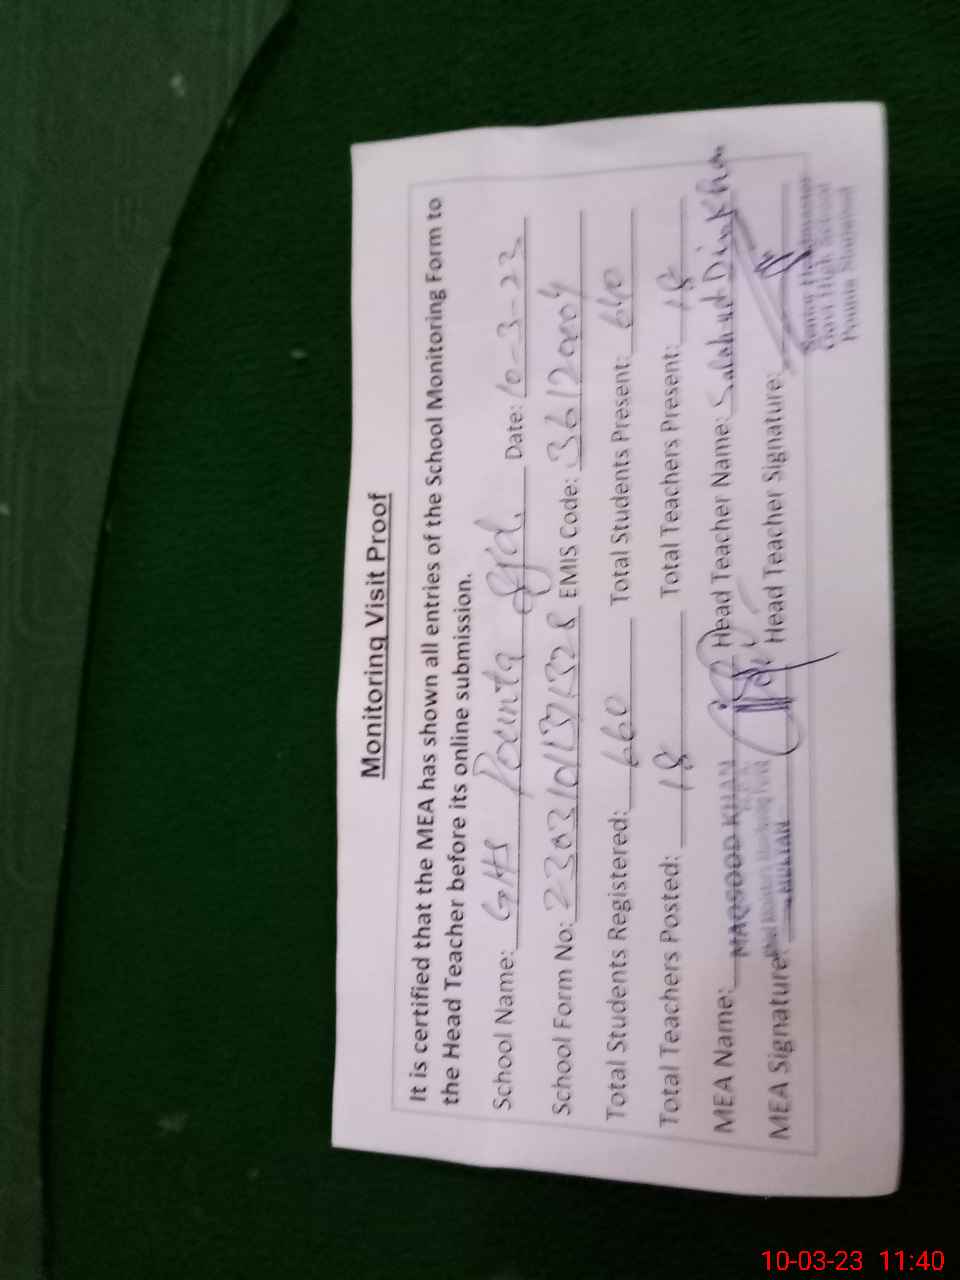 Monitoring Visit Proof
It is certified that the MEA has shown all entries of the School Monitoring Form to
the Head Teacher before its online submission.
School Name: GHS Pounta Date: 10-3-23
School Form No: EMIS Code: 36120004
Total Students Registered: 660 Total Students Present: 640
Total Teachers Posted: 18 Total Teachers Present: 18
MEA Name: MAQSOOD KHAN Head Teacher Name: Salah ud Din Khan
MEA Signature: Head Teacher Signature:
Govt High School
10-03-23 11:40